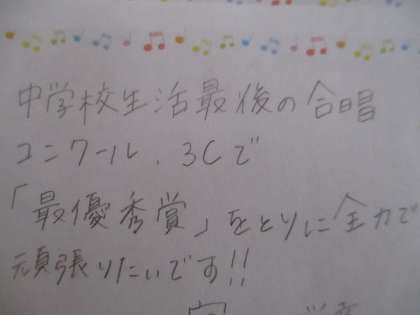 中学校生活最後の合唱
コンクール、3Cで
「最優秀賞」をとりに全力で
頑張りたいです!!